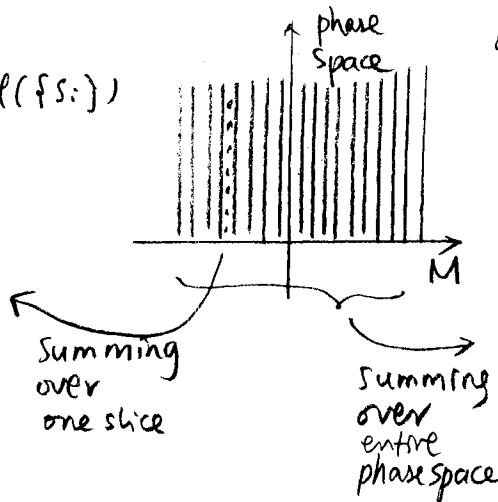 phase
space
({Si})
M
summing
over
one slice
summing
over
entire
phase space